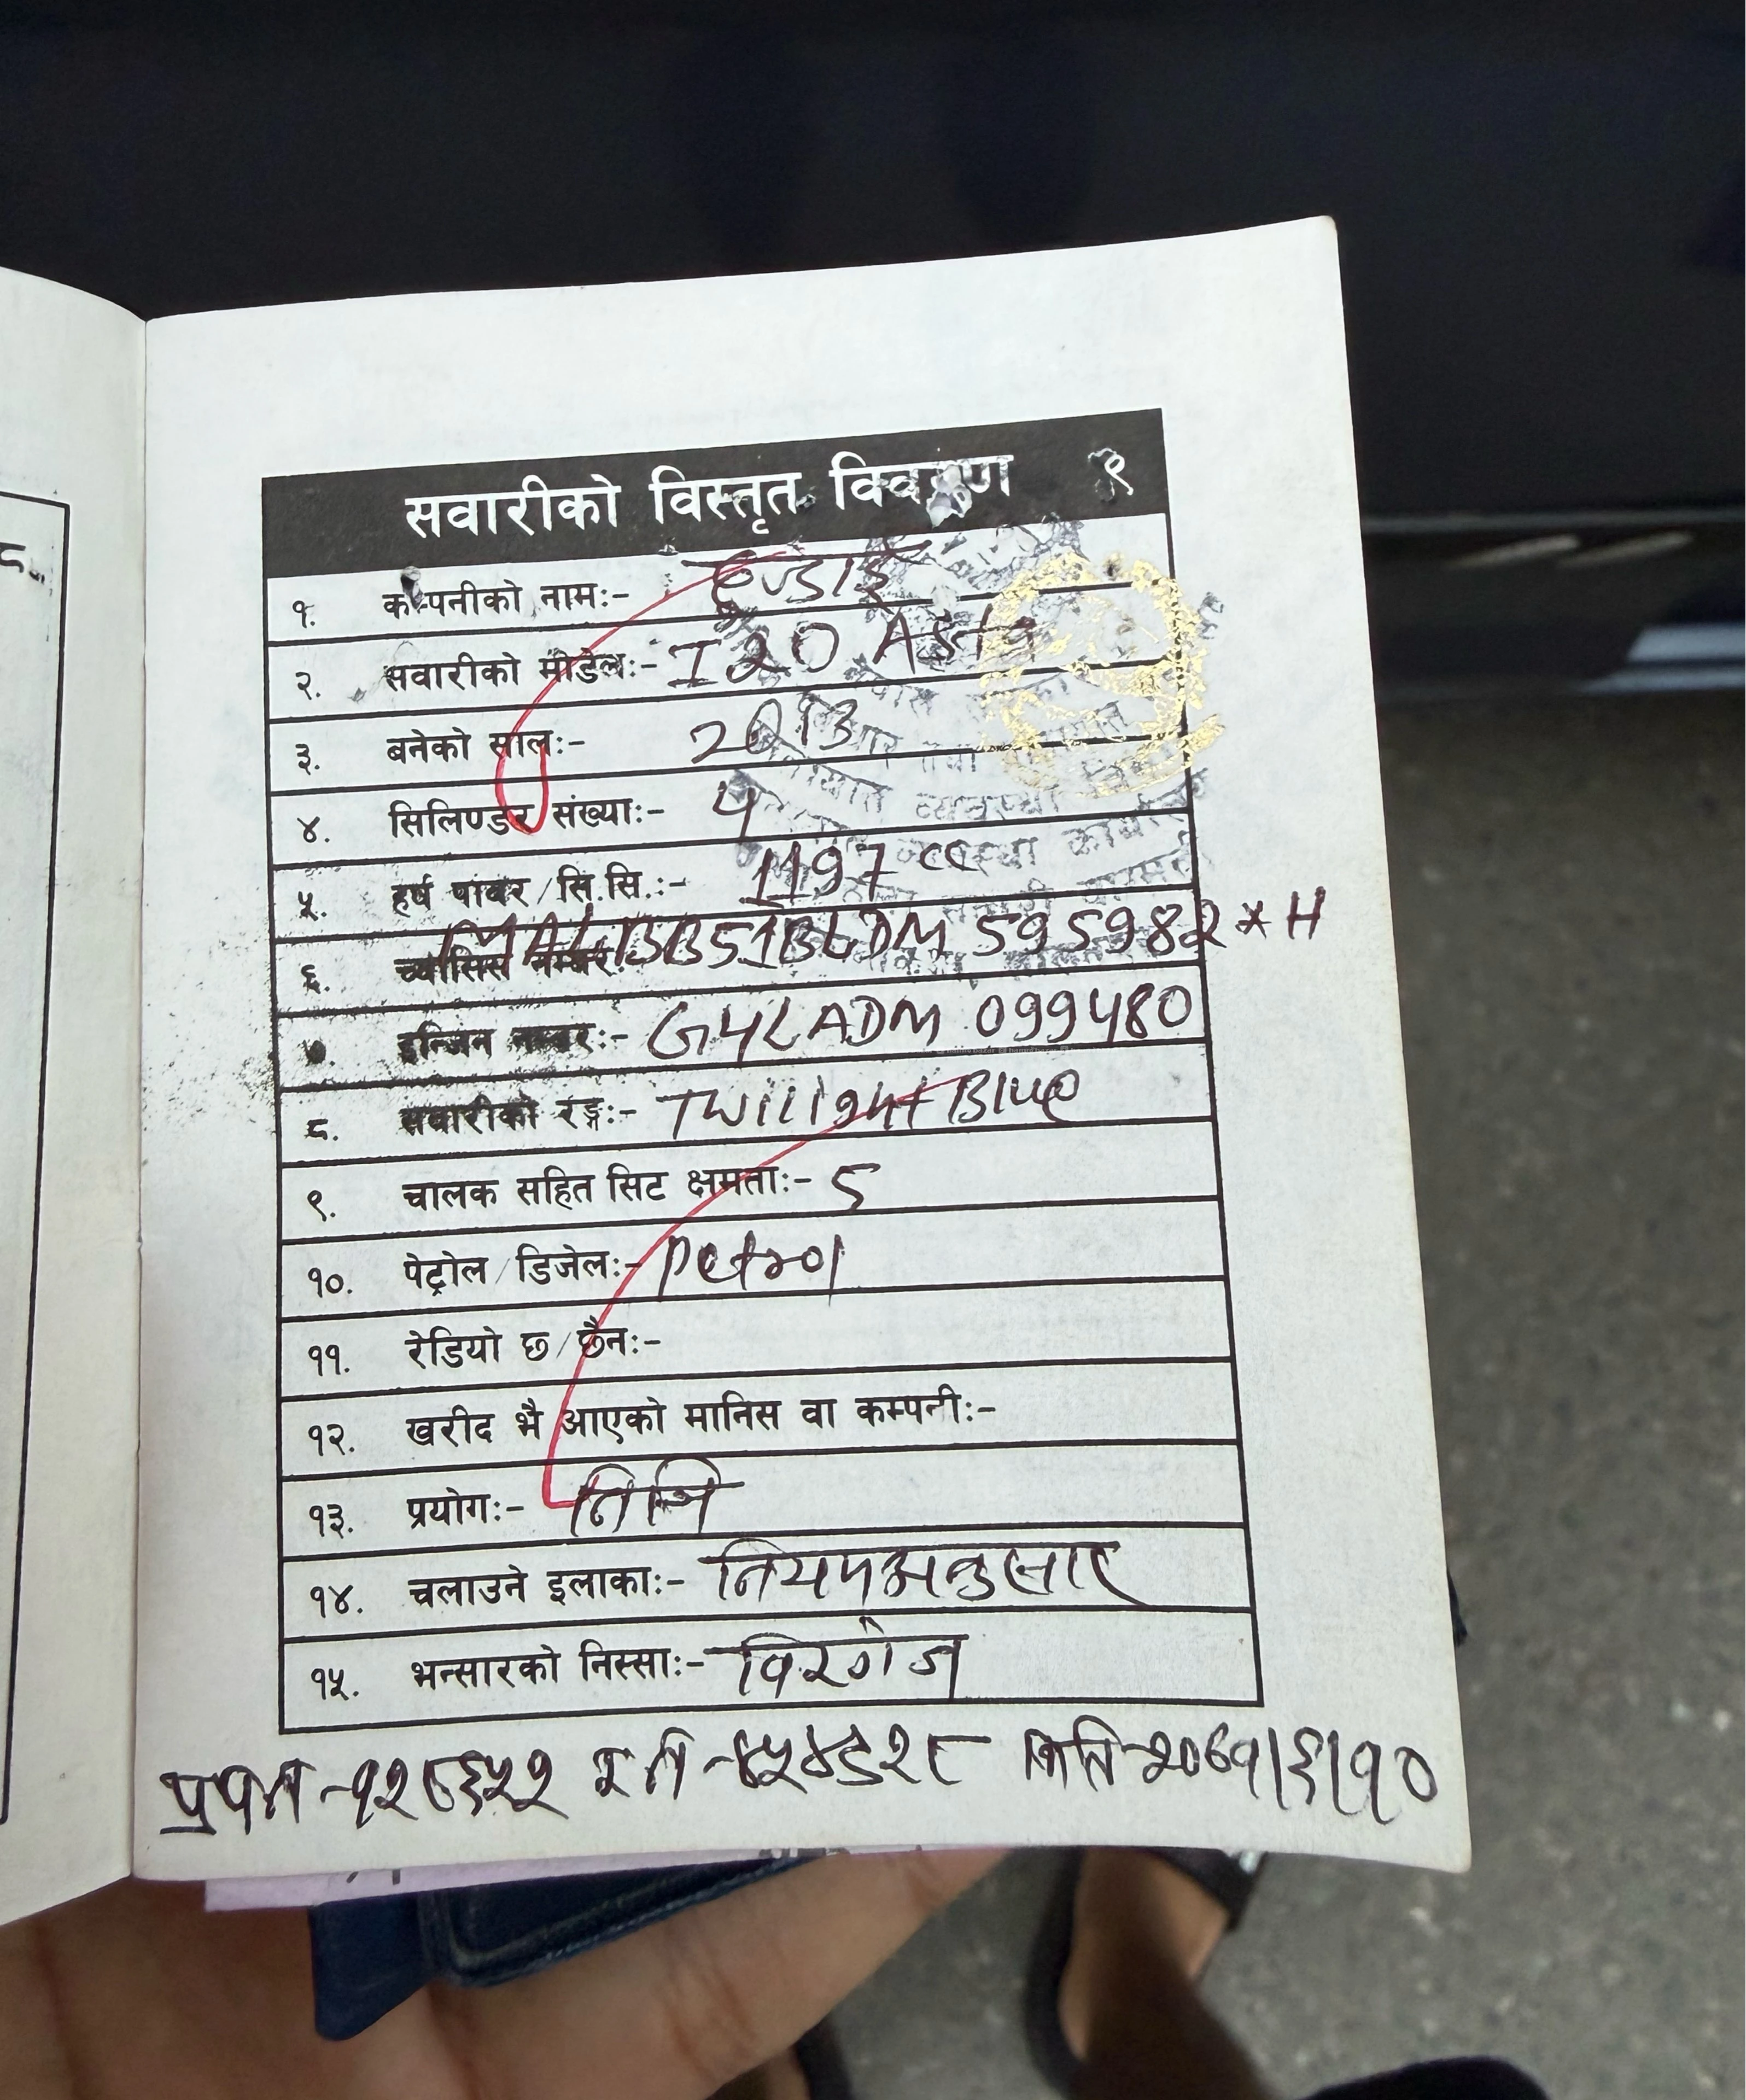 ८.
सवारीको विस्तृत विवरण ९
१. कम्पनीको नाम:- हुण्डाई
२. सवारीको मोडेल:- I20 Asta
३. बनेको साल:- 2013
४. सिलिण्डर संख्या:- 4
५. हर्ष पावर/सि.सि.:- 1197 CC
६. च्यासिस नम्बर: MALBB51BLDM 595982*H
७. इन्जिन नम्बर:- G4LADM 099480
८. सवारीको रङ्ग:- Twillight Blue
९. चालक सहित सिट क्षमता:- 5
१०. पेट्रोल/डिजेल:- Petrol
११. रेडियो छ/छैन:-
१२. खरीद भै आएको मानिस वा कम्पनी:-
१३. प्रयोग:- निजि
१४. चलाउने इलाका:- नियमअनुसार
१५. भन्सारको निस्सा:- विरगंज
मिति २०७१/६/१०